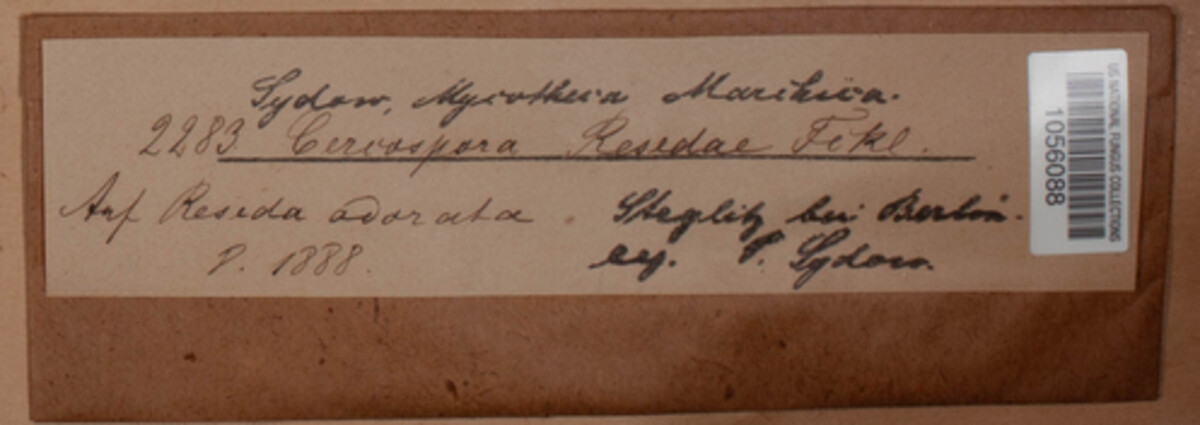 Sydow, Mycotheca Marchica.
2283. Cercospora Resedae Fckl.
Auf Reseda odorata. Steglitz bei Berlin.
1888. leg. P. Sydow.
US NATIONAL FUNGUS COLLECTIONS
1056088